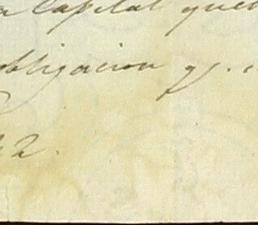 a Capital que
obligacion q.
2.